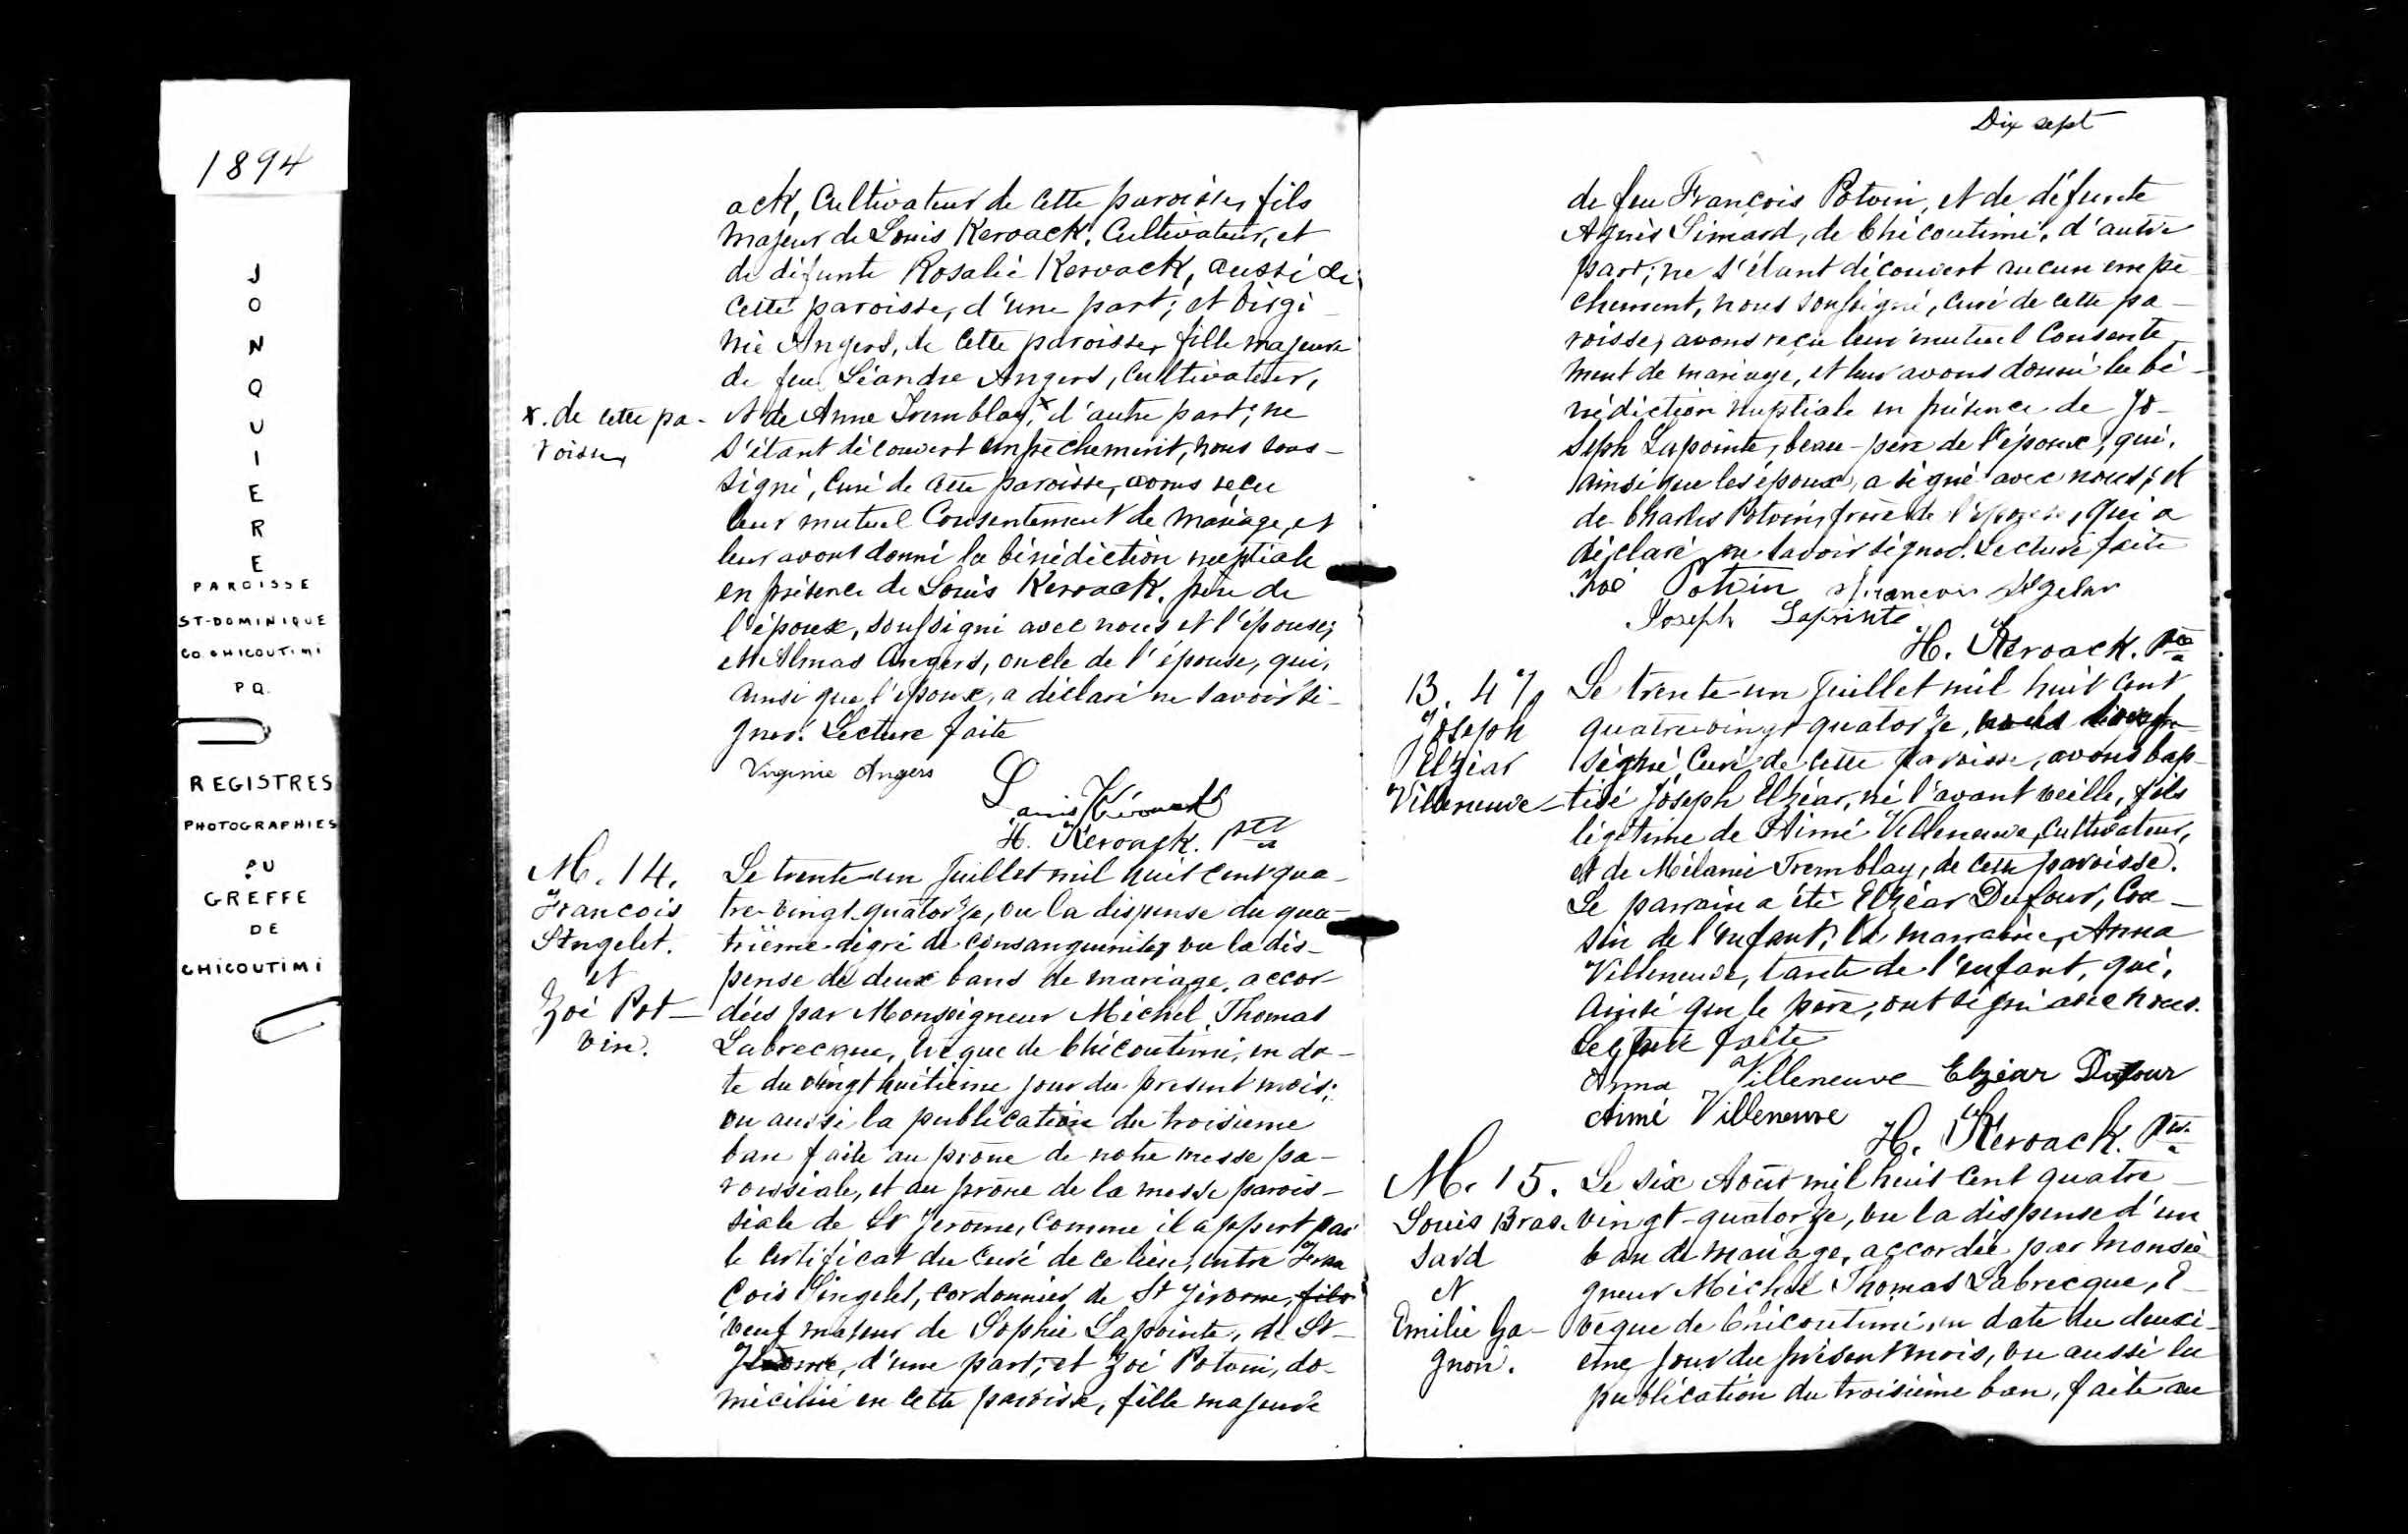 1894
JONQUIERE
PAROISSE
ST-DOMINIQUE
CO. CHICOUTIMI
P Q.
REGISTRES
PHOTOGRAPHIES
AU
GREFFE
DE
CHICOUTIMI
ack, Cultivateur de cette paroisse, fils
majeur de Louis Keroack, Cultivateur, et
de défunte Rosalie Keroack, aussi de
cette paroisse, d'une part; et Virgi-
nie Angers, de cette paroisse, fille majeure
de feu Léandre Angers, Cultivateur,
x. de cette pa-
roisse,
et de Anne Tremblay, x d'autre part; ne
s'étant découvert empêchement, nous sous-
signé, Curé de cette paroisse, avons reçu
leur mutuel Consentement de mariage, et
leur avons donné la bénédiction nuptiale
en présence de Louis Keroack, père de
l'époux, soussigné avec nous et l'épouse;
et Almas Angers, oncle de l'épouse, qui,
ainsi que l'époux, a déclaré ne savoir si-
gner. Lecture faite
Virginie Angers
Louis Kérouack
H. Keroack. Ptre
M. 14.
François
St Ingelet.
et
Zoé Pot-
vin.
Le trente-un Juillet mil huit cent qua-
tre-vingt-quatorze, vu la dispense du qua-
trième degré de consanguinité, vu la dis-
pense de deux bans de mariage, accor-
dées par Monseigneur Michel Thomas
Labrecque, Evêque de Chicoutimi, en da-
te du vingt huitième jour du présent mois;
vu aussi la publication du troisième
ban faite au prône de notre messe pa-
roissiale, et au prône de la messe parois-
siale de St Jérome, comme il appert par
le certificat du Curé de ce lieu, entre Fran
çois Singelet, cordonnier de St Jérome, fils
veuf majeur de Sophie Lapointe, de St-
Jérome, d'une part; et Zoé Potvin, do-
miciliée en cette paroisse, fille majeure
Dix sept
de feu François Potvin, et de défunte
Agnès Simard, de Chicoutimi, d'autre
part; ne s'étant découvert aucun empê
chement, nous soussigné, curé de cette pa-
roisse, avons reçu leur mutuel Consente
ment de mariage, et leur avons donné la bé-
nédiction nuptiale en présence de Jo-
seph Lapointe, beau-père de l'époux, qui,
ainsi que les époux, a signé avec nous; et
de Charles Potvin, frère de l'épouse, qui a
déclaré ne savoir signer. Lecture faite
Zoé Potvin François
Joseph Lapointe
H. Keroack. Ptre
B. 47
Joseph
Elzéar
Villeneuve
Le trente-un Juillet mil huit cent
quatre-vingt quatorze, nous sous
signé Curé de cette paroisse, avons bap-
tisé Joseph Elzéar, né l'avant veille, fils
légitime de Aimé Villeneuve, Cultivateur,
et de Mélanie Tremblay, de cette paroisse.
Le parrain a été Elzéar Dufour, Cou-
sin de l'enfant; la marraine, Anna
Villeneuve, tante de l'enfant, qui,
ainsi que le père, ont signé avec nous.
Lecture faite
Anna Villeneuve Elzéar Dufour
Aimé Villeneuve
H. Keroack. Ptre
M. 15.
Louis Bras-
sard
et
Emilie Ga-
gnon.
Le six Août mil huit cent quatre-
vingt-quatorze, vu la dispense d'un
ban de mariage, accordée par Monsei
gneur Michel Thomas Labrecque, E-
vêque de Chicoutimi, en date du deuxi-
ème jour du présent mois, vu aussi la
publication du troisième ban, faite au